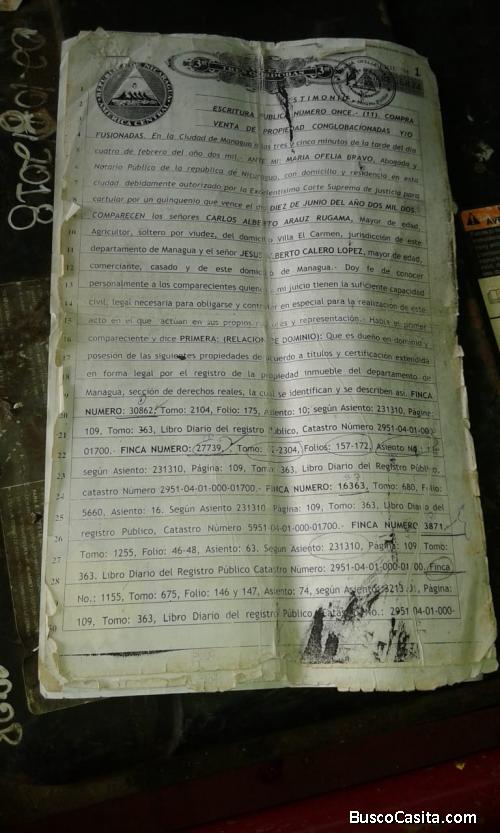 REPUBLICA DE NICARAGUA
AMERICA CENTRAL
TRES CORDOBAS
TESTIMONIO
ESCRITURA PUBLICA NUMERO ONCE.- (11). COMPRA
VENTA DE PROPIEDAD CONGLOBACIONADAS Y/O
FUSIONADAS. En la Ciudad de Managua a las tres y cinco minutos de la tarde del día
cuatro de febrero del año dos mil.- ANTE MI: MARIA OFELIA BRAVO, Abogada y
Notario Público de la república de Nicaragua, con domicilio y residencia en esta
ciudad, debidamente autorizado por la Excelentísima Corte Suprema de justicia para
cartular por un quinquenio que vence el día DIEZ DE JUNIO DEL AÑO DOS MIL DOS.
COMPARECEN los señores CARLOS ALBERTO ARAUZ RUGAMA, Mayor de edad,
Agricultor, soltero por viudez, del domicilio Villa El Carmen, jurisdicción de este
departamento de Managua y el señor JESUS ALBERTO CALERO LOPEZ, mayor de edad,
comerciante, casado y de este domicilio de Managua.- Doy fe de conocer
personalmente a los comparecientes quienes a mi juicio tienen la suficiente capacidad
civil, legal necesaria para obligarse y contratar en especial para la realización de este
acto en el que actúan en sus propios y representación.- Habla el primer
compareciente y dice PRIMERA: (RELACION DE DOMINIO): Que es dueño en dominio y
posesión de las siguientes propiedades de acuerdo a títulos y certificación extendida
en forma legal por el registro de la propiedad inmueble del departamento de
Managua, sección de derechos reales, la cual se identifican y se describen así. FINCA
NUMERO: 30862; Tomo: 2104, Folio: 175, Asiento: 10; según Asiento: 231310, Página:
109, Tomo: 363, Libro Diario del Registro Público, Catastro Numero 2951-04-01-000-
01700.- FINCA NUMERO: 27739, Tomo: -2304, Folios: 157-172, Asiento No.:
según Asiento: 231310, Página: 109, Tomo: 363, Libro Diario del Registro Público,
catastro Numero 2951-04-01-000-01700.- FINCA NUMERO: 16363, Tomo: 680, Folio:
5660, Asiento: 16. Según Asiento 231310 Página: 109, Tomo: 363, Libro Diario del
registro Público, Catastro Numero 5951-04-01-000-01700.- FINCA NUMERO 3871,
Tomo: 1255, Folio: 46-48, Asiento: 63. Según Asiento: 231310, Página: 109 Tomo:
363. Libro Diario del Registro Público Catastro Número: 2951-04-01-000-01 00. Finca
No.: 1155, Tomo: 675, Folio: 146 y 147, Asiento: 74, según Asiento: Página:
109, Tomo: 363, Libro Diario del registro Público Catastro No.: 2951-04-01-000-
BuscoCasita.com